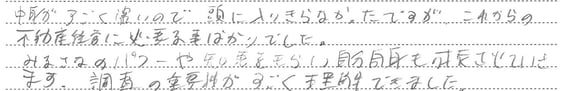 中身がすごく濃いので 頭に入りきらなかったですが これからの
不動産経営に必要な事ばかりでした。
みなさんのパワーや 知恵をもらい 自分自身も成長させていき
ます。 調査の重要性が すごく理解できました。